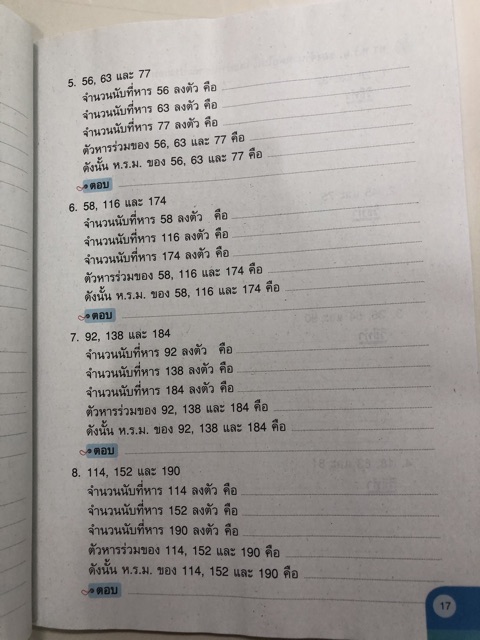 5. 56, 63 และ 77
จำนวนนับที่หาร 56 ลงตัว คือ
จำนวนนับที่หาร 63 ลงตัว คือ
จำนวนนับที่หาร 77 ลงตัว คือ
ตัวหารร่วมของ 56, 63 และ 77 คือ
ดังนั้น ห.ร.ม. ของ 56, 63 และ 77 คือ
ตอบ
6. 58, 116 และ 174
จำนวนนับที่หาร 58 ลงตัว คือ
จำนวนนับที่หาร 116 ลงตัว คือ
จำนวนนับที่หาร 174 ลงตัว คือ
ตัวหารร่วมของ 58, 116 และ 174 คือ
ดังนั้น ห.ร.ม. ของ 58, 116 และ 174 คือ
ตอบ
7. 92, 138 และ 184
จำนวนนับที่หาร 92 ลงตัว คือ
จำนวนนับที่หาร 138 ลงตัว คือ
จำนวนนับที่หาร 184 ลงตัว คือ
ตัวหารร่วมของ 92, 138 และ 184 คือ
ดังนั้น ห.ร.ม. ของ 92, 138 และ 184 คือ
ตอบ
8. 114, 152 และ 190
จำนวนนับที่หาร 114 ลงตัว คือ
จำนวนนับที่หาร 152 ลงตัว คือ
จำนวนนับที่หาร 190 ลงตัว คือ
ตัวหารร่วมของ 114, 152 และ 190 คือ
ดังนั้น ห.ร.ม. ของ 114, 152 และ 190 คือ
ตอบ
17